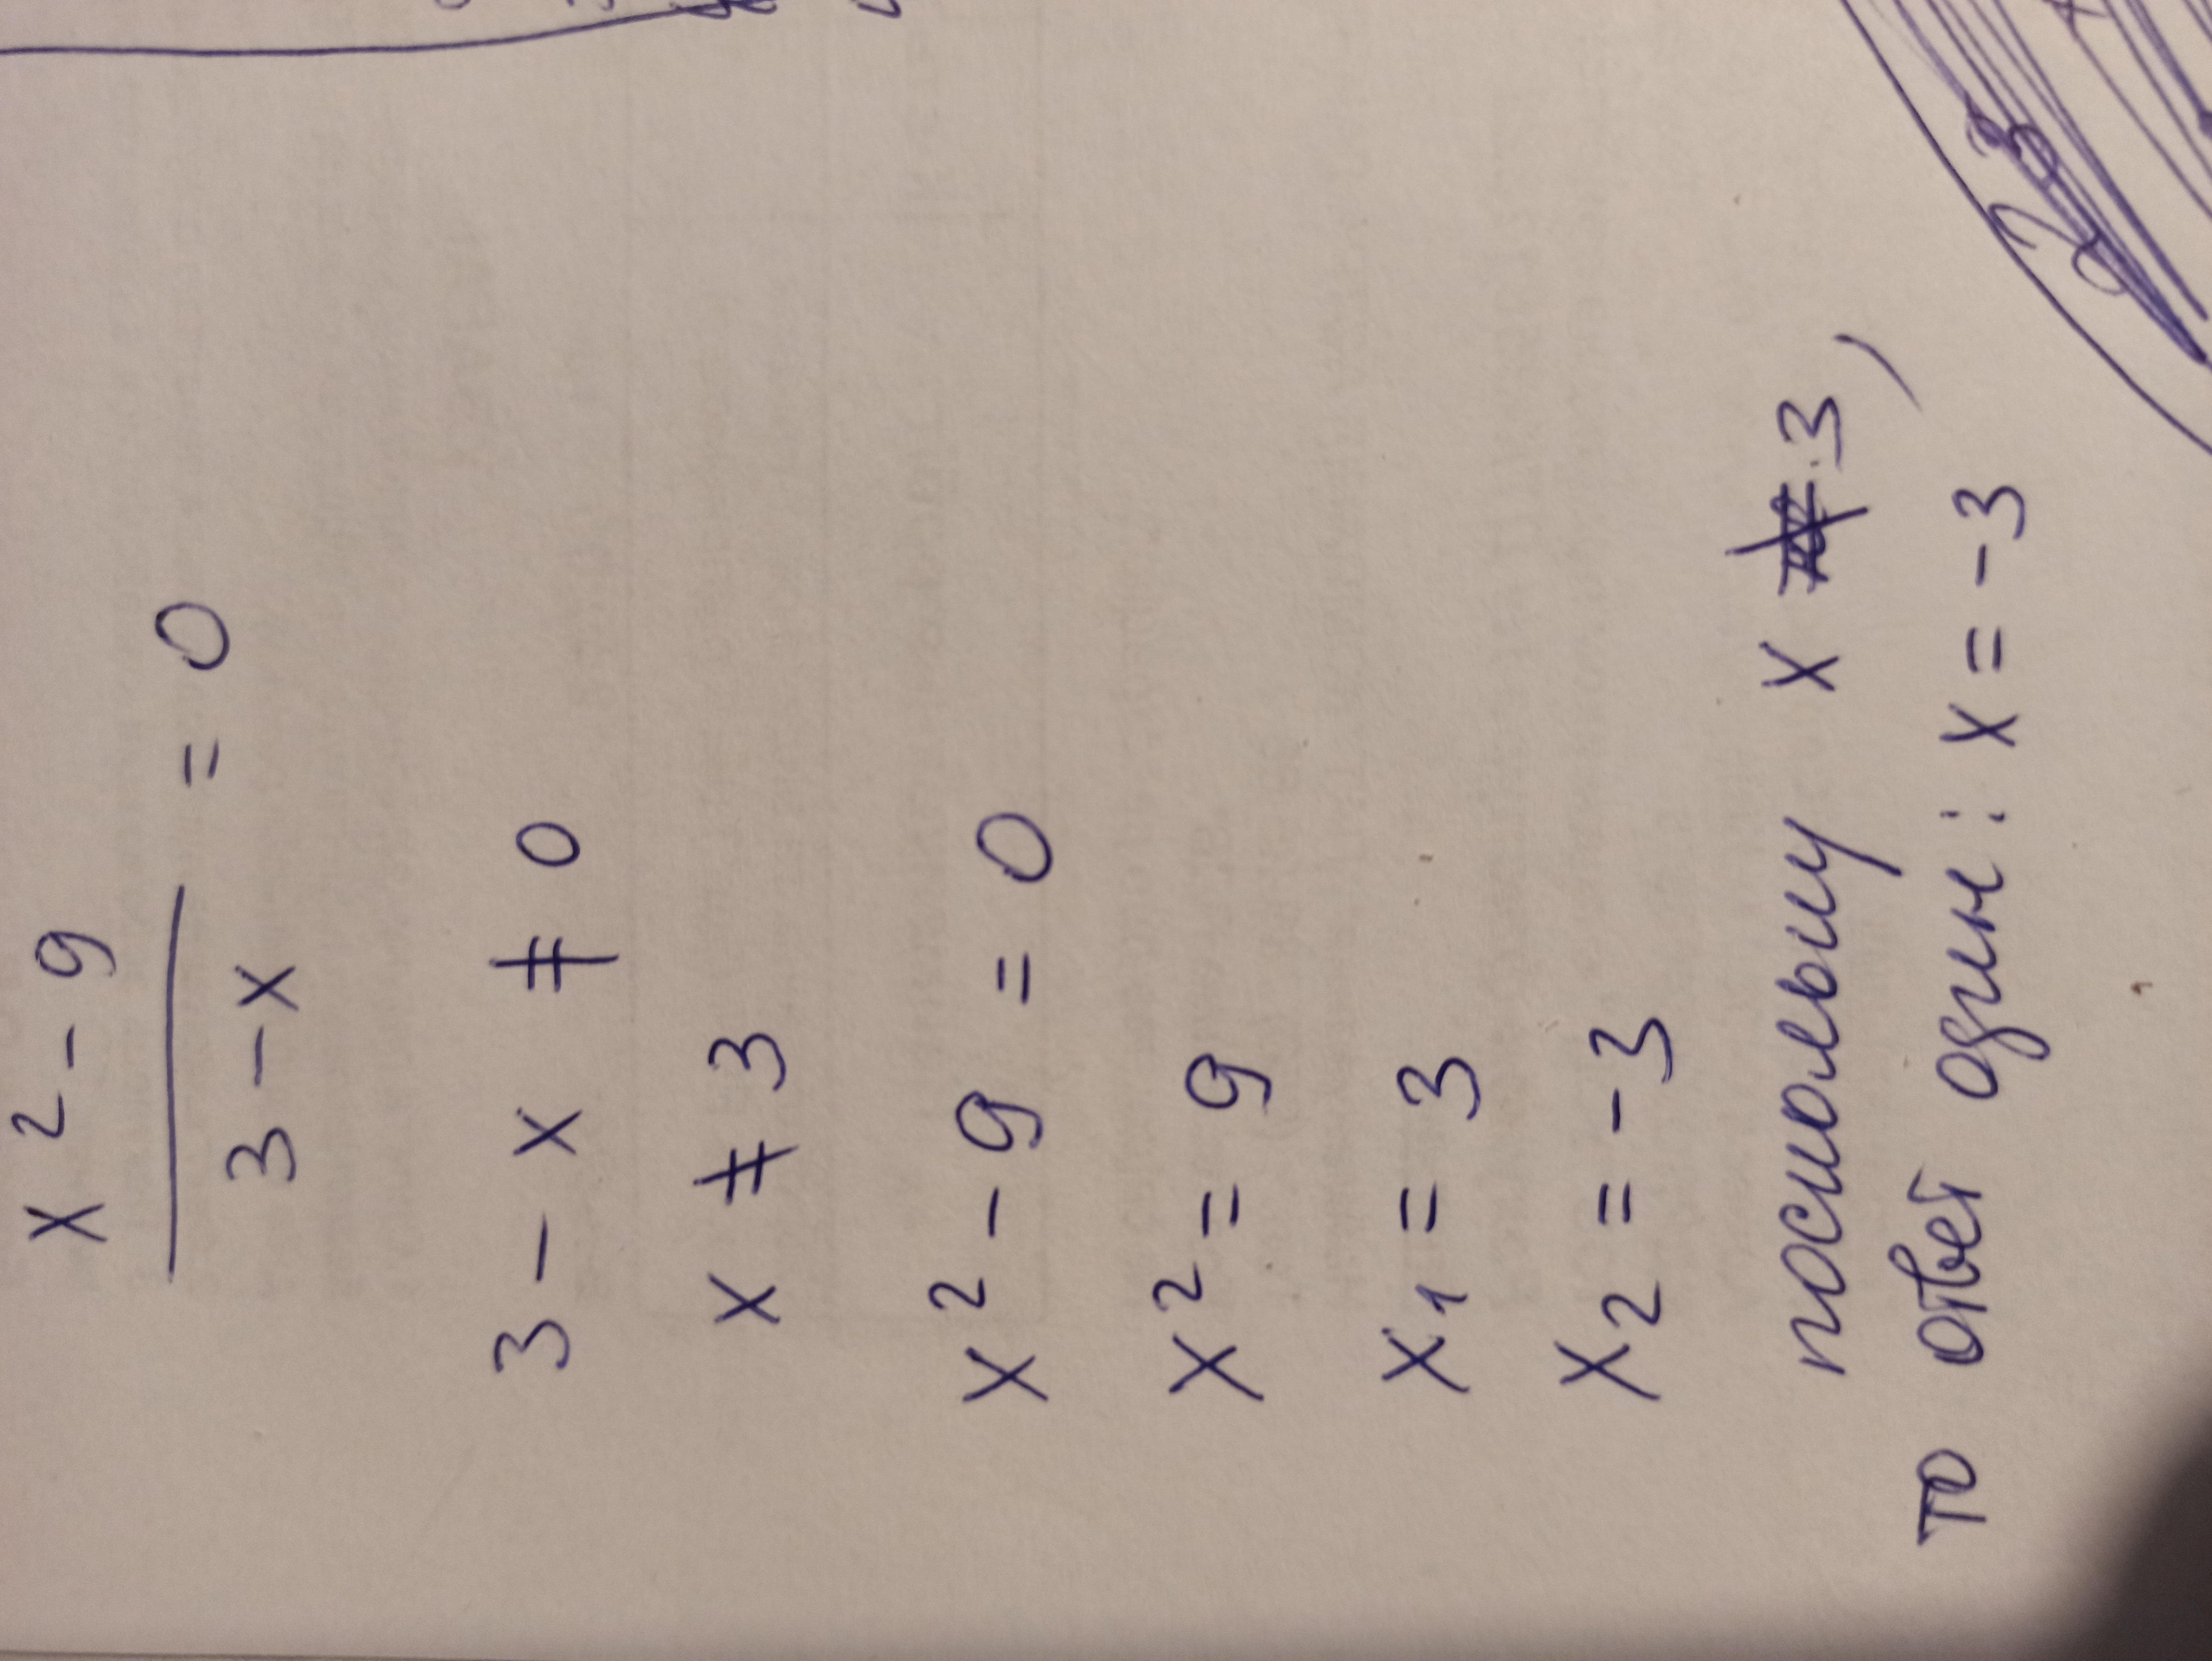 x² - 9
3 - x
= 0
3 - x ≠ 0
x ≠ 3
x² - 9 = 0
x² = 9
x₁ = 3
x₂ = -3
поскольку x ≠ 3,
то ответ один: x = -3